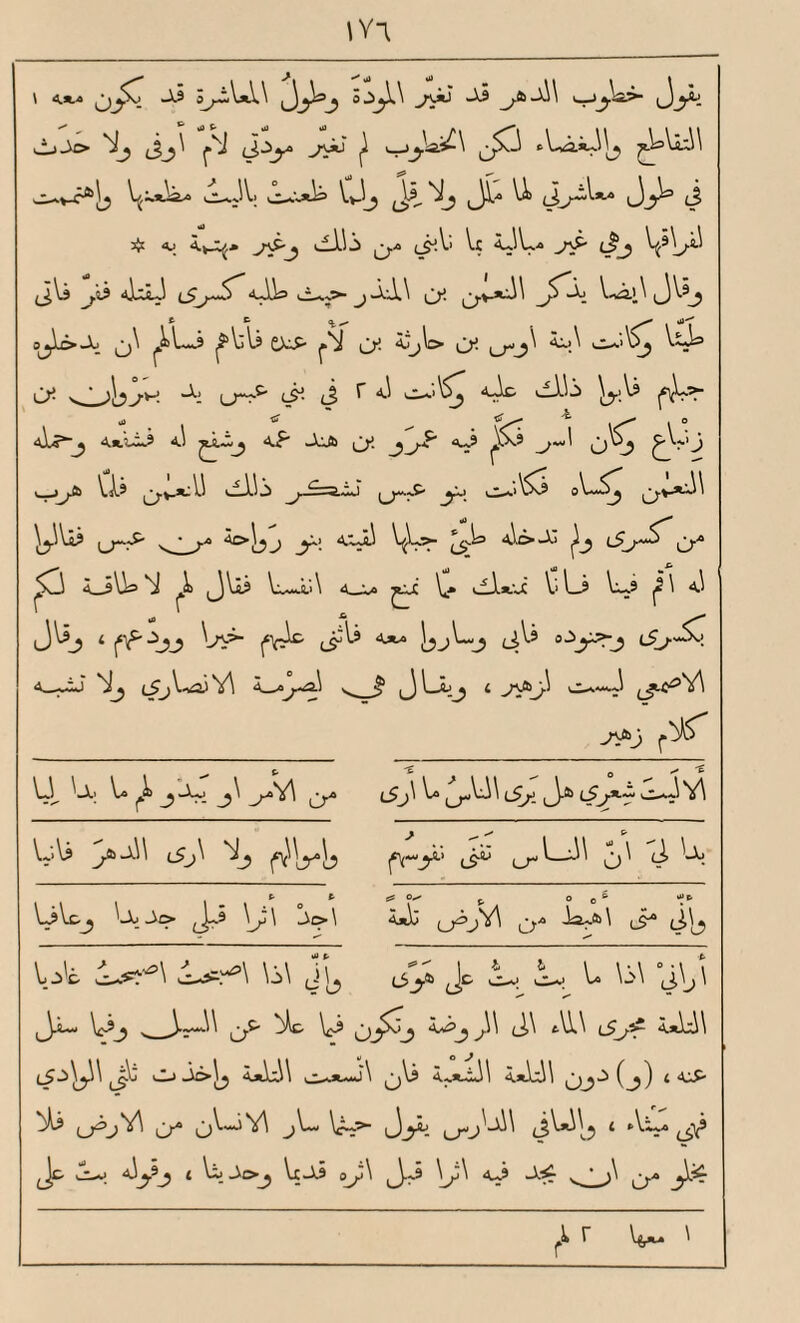 ١٧٦
يقول خطوب الدهر قد تغير المودة وطول المعاشرة قد تكون معه ١
التقاطع والبغضاء لكن الخطوب لم تغير مودتي لأم أوفى ولا حدث
في طول معاشرتي لها ملال ولا قلى ولها بالبت واهتمت
لفراقها وهي غير مبالية بما نابني من ذلك وغير مهتمة به *
وقال ايضا يذكر النعمان بن المنذر حيث طلبه كسرى ليقتله ففر فاتى
طيئا وكانت ابنة أوس بن حارثة بن لأم عنده فاتاهم فسألهم أن يدخلوه
جبلهم فابوا ذلك عليه وكانت له ٢ في بني عبس يد بمروان بن
زنباع وكان أسر فكلم فيه عمرو بن هند عمه وشفع له فشفعه وحمله
النعمان وكساه فكانت بنو عبس تشكر ذلك للنعمان فلما هرب
من كسرى ولم تدخله طيئ جبلها لقيته بنو رواحة من عبس فقالوا
له أقم فينا فانا نمنعك مما نمنع منه أنفسنا فقال لهم لا طاقة لكم
بكسرى وجنوده فابى وساروا معه فاثنى عليهم خيرا وودعهم ، وقال
الأصمعي ليست لزهير ، ويقال هي لصرمة الأنصاري ولا تشبه
كلام زهير
ألا ليت شعري هل يرى الناس ما أرى من الأمر أو يبدو لهم ما بدا ليا
بدا لي أن الناس تفنى نفوسهم وأموالهم ولا أرى الدهر فانيا
وإني متى أهبط من الأرض تلعة أجد أثرا قبلي جديدا وعافيا
أراني إذا ما بت بت على هوى وأني إذا أصبحت أصبحت غاديا
التلعة مجرى الماء الى الروضة وتكون فيما علا عن السيل وفيما سفل
عنه ، (و) دون التلعة الشعبة فان اتسعت التلعة واخذت ثلثي الوادي
فهي ميثاء ، والعافي الدارس يقول حيثما سار الإنسان من الأرض فلا
يخلو من أن يجد فيه اثرا قبل اثره قديما وحديثا ، وقوله بت على
١ معها ٢ لهم